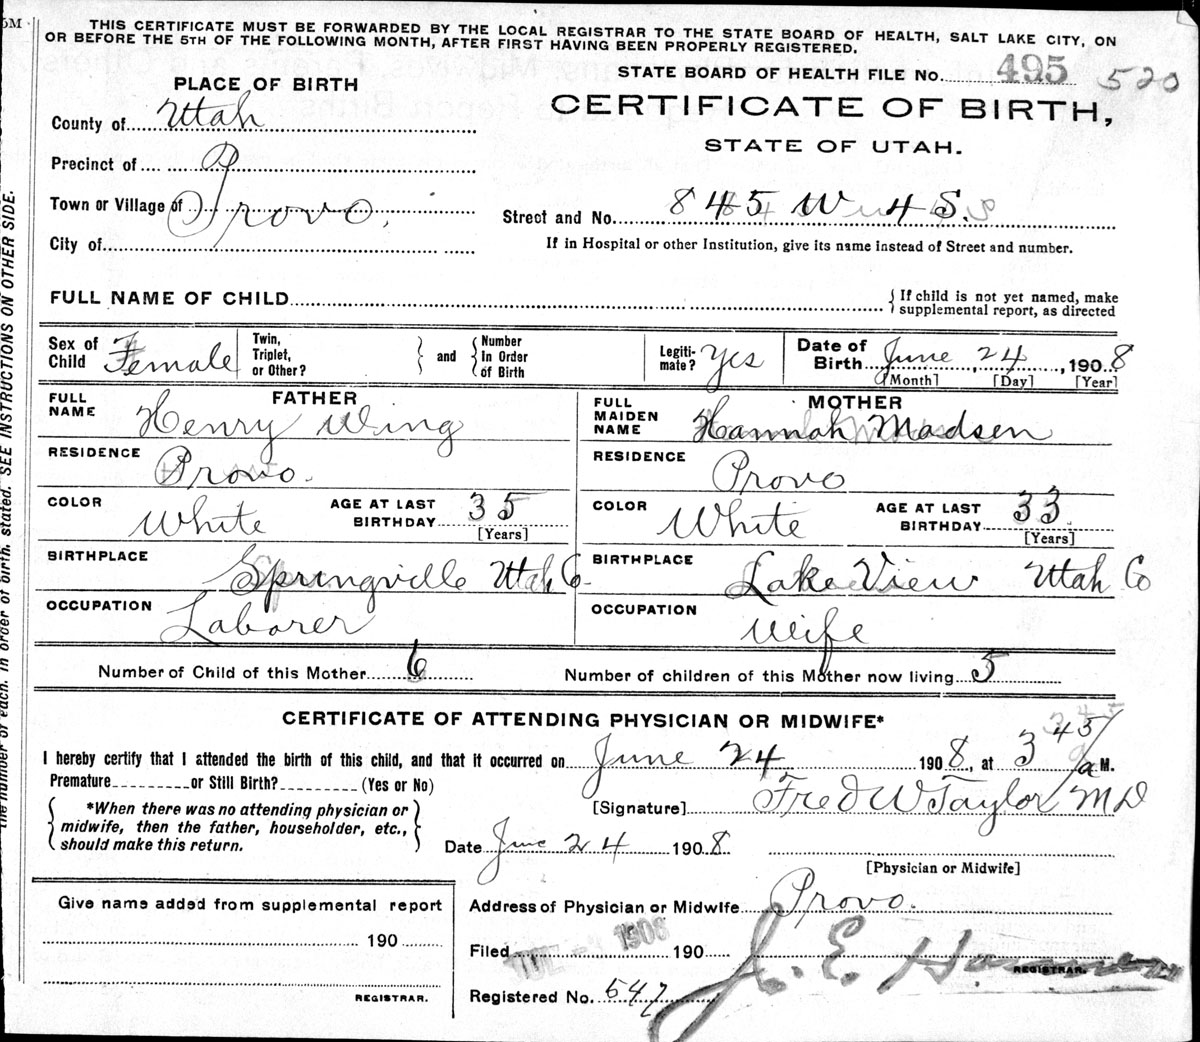 THIS CERTIFICATE MUST BE FORWARDED BY THE LOCAL REGISTRAR TO THE STATE BOARD OF HEALTH, SALT LAKE CITY, ON
OR BEFORE THE 5TH OF THE FOLLOWING MONTH, AFTER FIRST HAVING BEEN PROPERLY REGISTERED.
STATE BOARD OF HEALTH FILE No. 495 520
PLACE OF BIRTH
CERTIFICATE OF BIRTH,
STATE OF UTAH.
County of Utah
Precinct of
Town or Village of Provo.
City of
Street and No. 845 W 4 S.
If in Hospital or other Institution, give its name instead of Street and number.
FULL NAME OF CHILD { If child is not yet named, make
supplemental report, as directed
Sex of Child Female
Twin, Triplet, or Other? } and { Number In Order of Birth
Legiti-mate? Yes
Date of Birth June, 24, 1908
[Month] [Day] [Year]
FATHER
FULL NAME Henry Wing
RESIDENCE Provo.
COLOR White
AGE AT LAST BIRTHDAY 35
[Years]
BIRTHPLACE Springville Utah Co.
OCCUPATION Laborer
MOTHER
FULL MAIDEN NAME Hannah Madsen
RESIDENCE Provo
COLOR White
AGE AT LAST BIRTHDAY 33
[Years]
BIRTHPLACE Lake View Utah Co
OCCUPATION Wife
Number of Child of this Mother 6 Number of children of this Mother now living 5
CERTIFICATE OF ATTENDING PHYSICIAN OR MIDWIFE*
I hereby certify that I attended the birth of this child, and that it occurred on June 24 1908, at 3 45/a M.
Premature or Still Birth? (Yes or No)
[Signature] Fred W Taylor MD
{ *When there was no attending physician or
midwife, then the father, householder, etc.,
should make this return. }
Date June 24 1908.
[Physician or Midwife]
Give name added from supplemental report
190
REGISTRAR.
Address of Physician or Midwife Provo.
Filed 1908 190
J. E.
REGISTRAR.
Registered No. 547
in order of birth, stated. SEE INSTRUCTIONS ON OTHER SIDE.